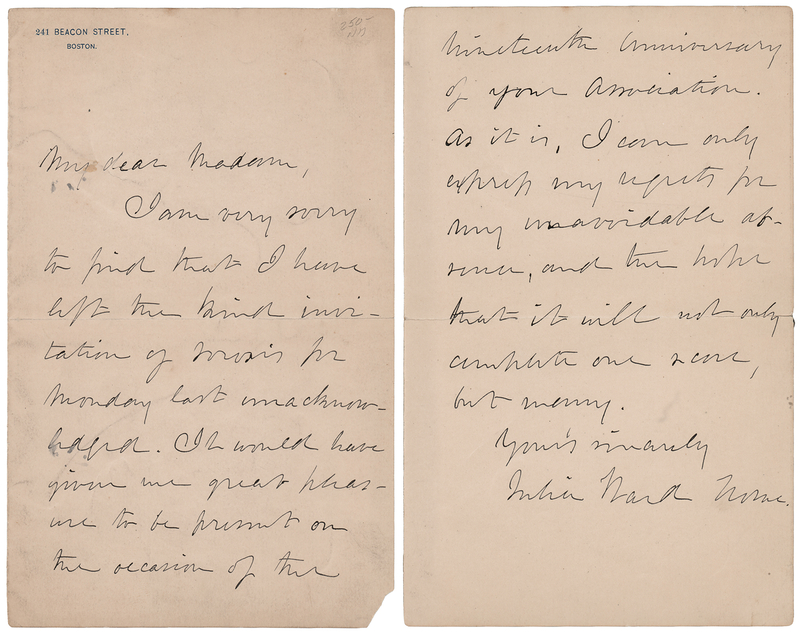 241 BEACON STREET,
BOSTON.
250-
My dear Madam,
I am very sorry
to find that I have
left the kind invi-
tation of Sorosis for
Monday last unacknow-
ledged. It would have
given me great pleas-
ure to be present on
the occasion of the
nineteenth anniversary
of your Association.
As it is, I can only
express my regrets for
my unavoidable ab-
sence, and the hope
that it will not only
complete one score,
but many.
Yours sincerely
Julia Ward Howe.